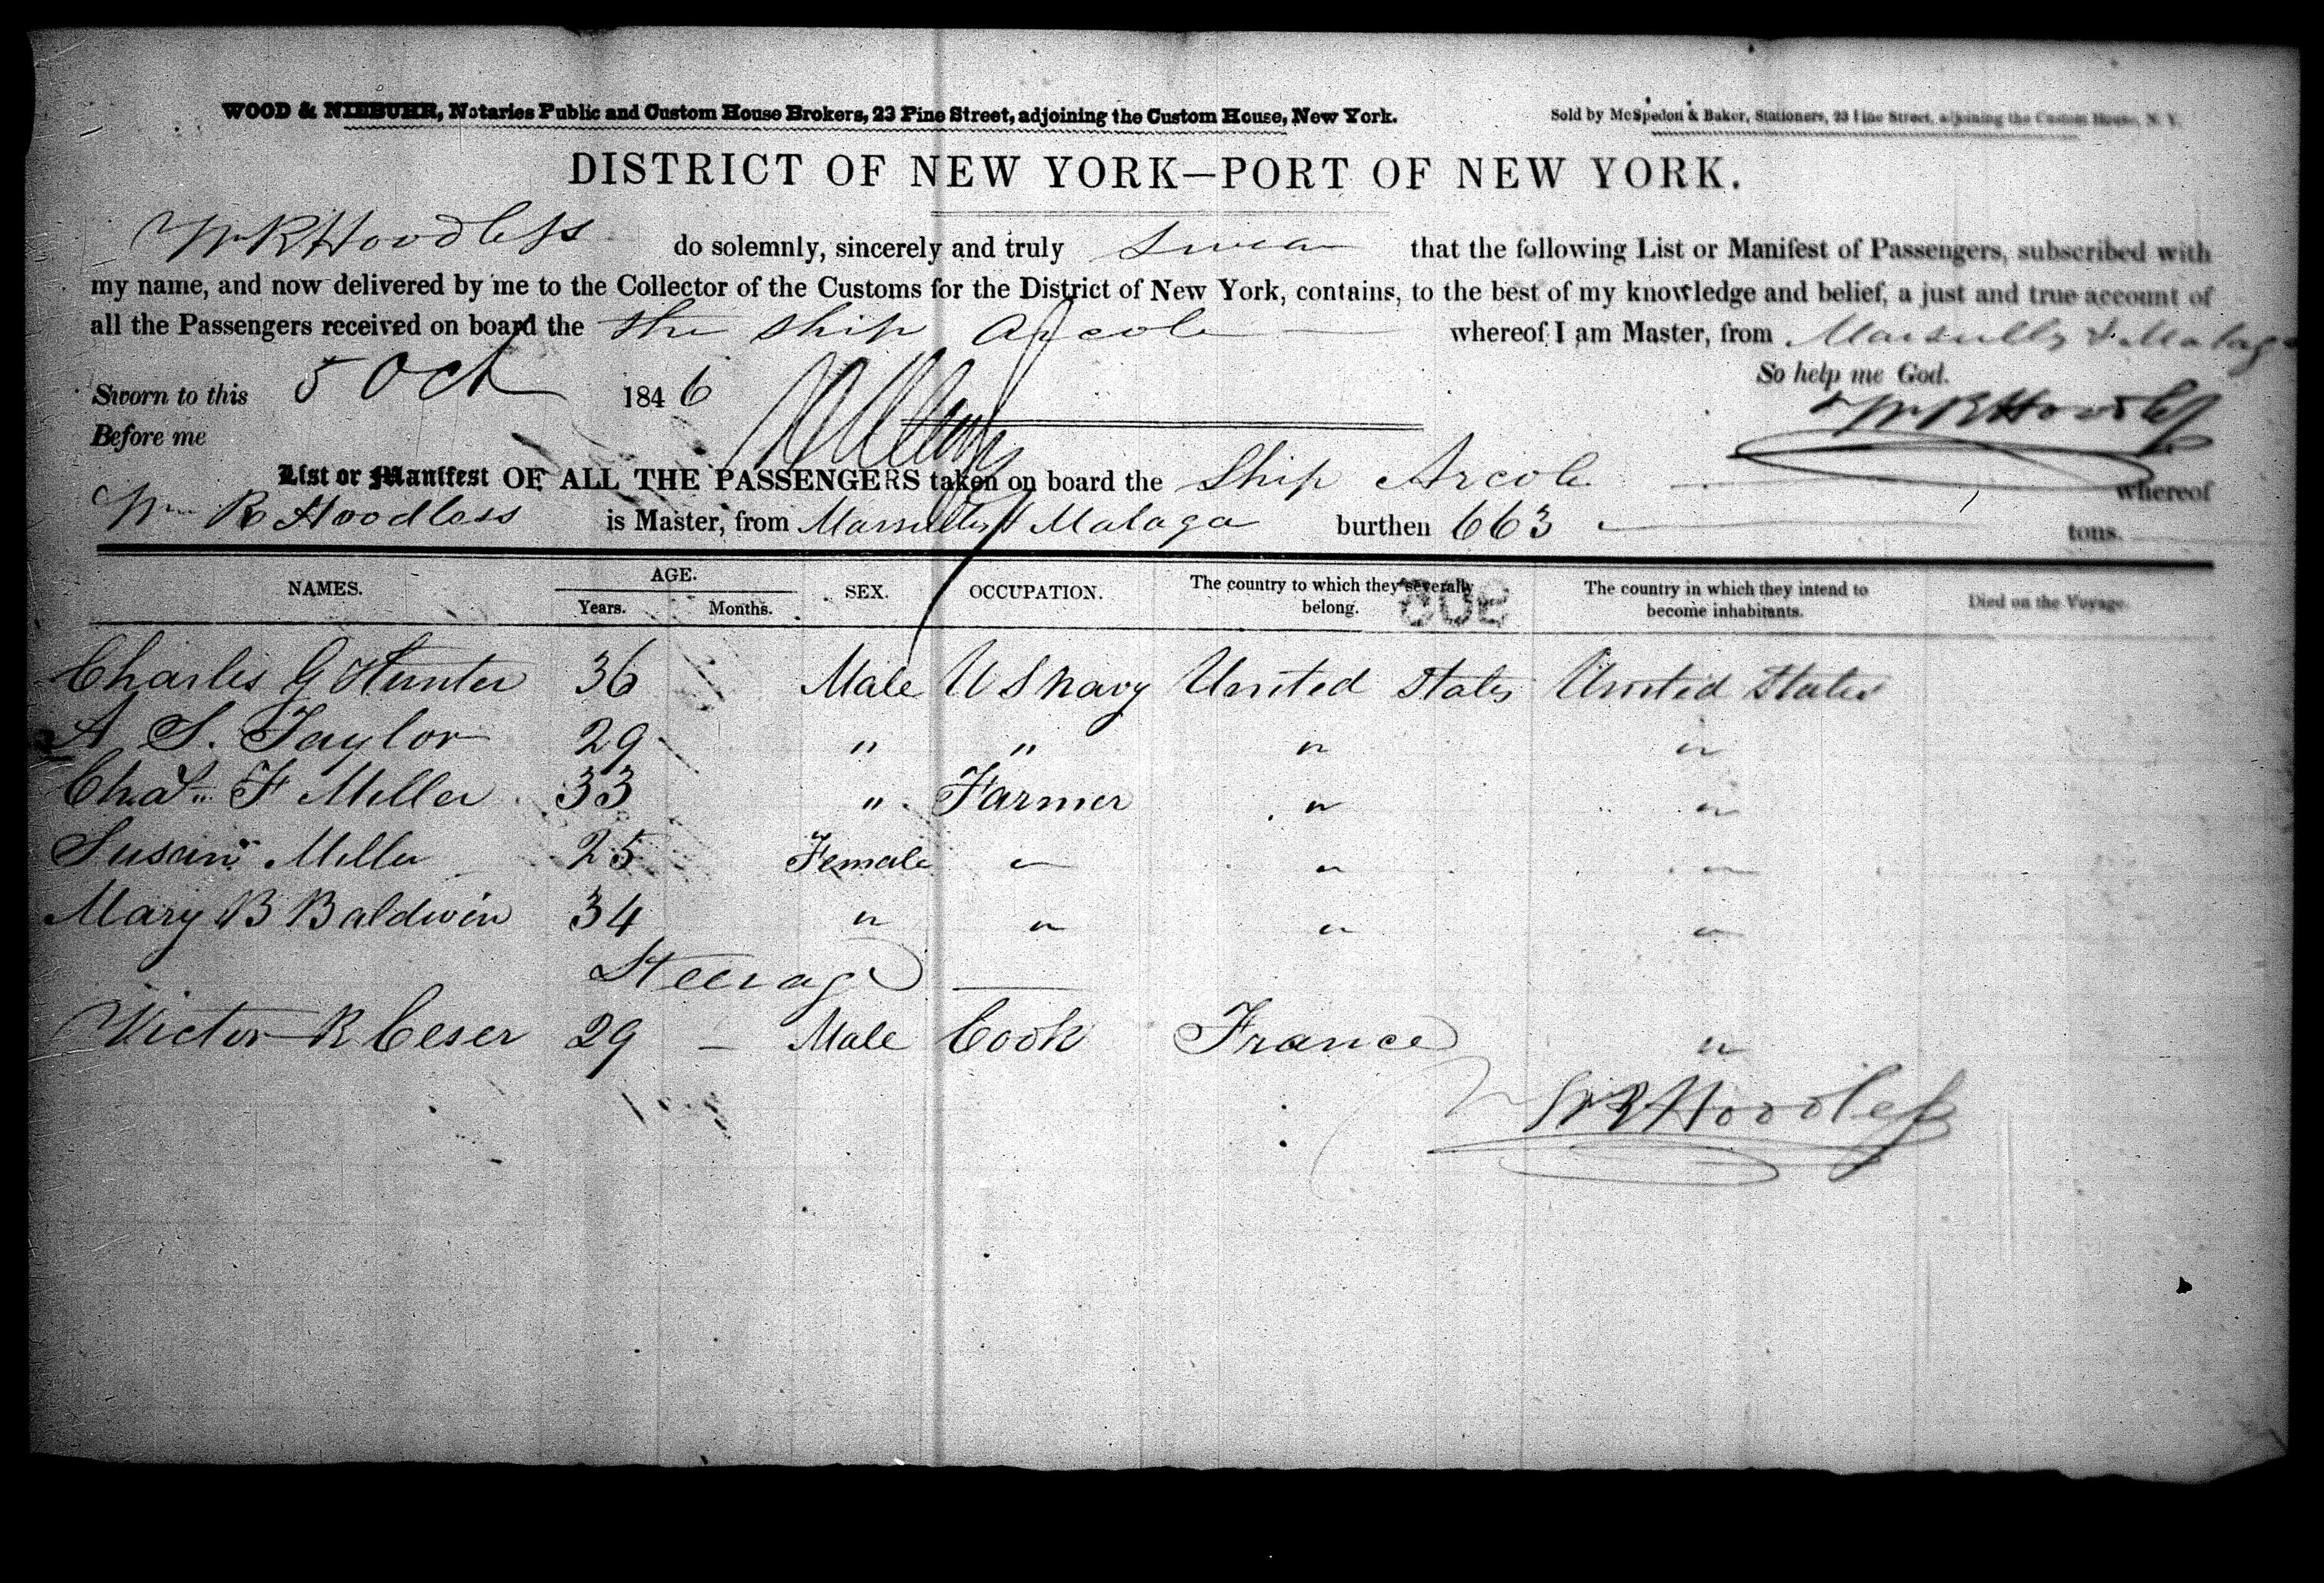 WOOD & NIEBUHR, Notaries Public and Custom House Brokers, 23 Pine Street, adjoining the Custom House, New York. Sold by McSpedon & Baker, Stationers, 23 Pine Street, adjoining the Custom House, N. Y.
DISTRICT OF NEW YORK—PORT OF NEW YORK.
Wm R Hoodless do solemnly, sincerely and truly Swear that the following List or Manifest of Passengers, subscribed with
my name, and now delivered by me to the Collector of the Customs for the District of New York, contains, to the best of my knowledge and belief, a just and true account of
all the Passengers received on board the the Ship Arcole whereof I am Master, from Marseilles & Malaga
So help me God.
Sworn to this 5 Oct 1846 Wm R Hoodless
Before me
List or Manifest OF ALL THE PASSENGERS taken on board the Ship Arcole whereof
Wm R Hoodless is Master, from Marseilles & Malaga burthen 663 tons.
NAMES. AGE. SEX. OCCUPATION. The country to which they severally belong. The country in which they intend to become inhabitants. Died on the Voyage.
Years. Months.
Charles G Hunter 36 Male U S Navy United States United States
A S. Taylor 29 " " " "
Chas F Miller 33 " Farmer " "
Susan Miller 25 Female — " "
Mary B Baldwin 34 " " " "
Steerage
Victor R Ceser 29 — Male Cook France "
Wm R Hoodless